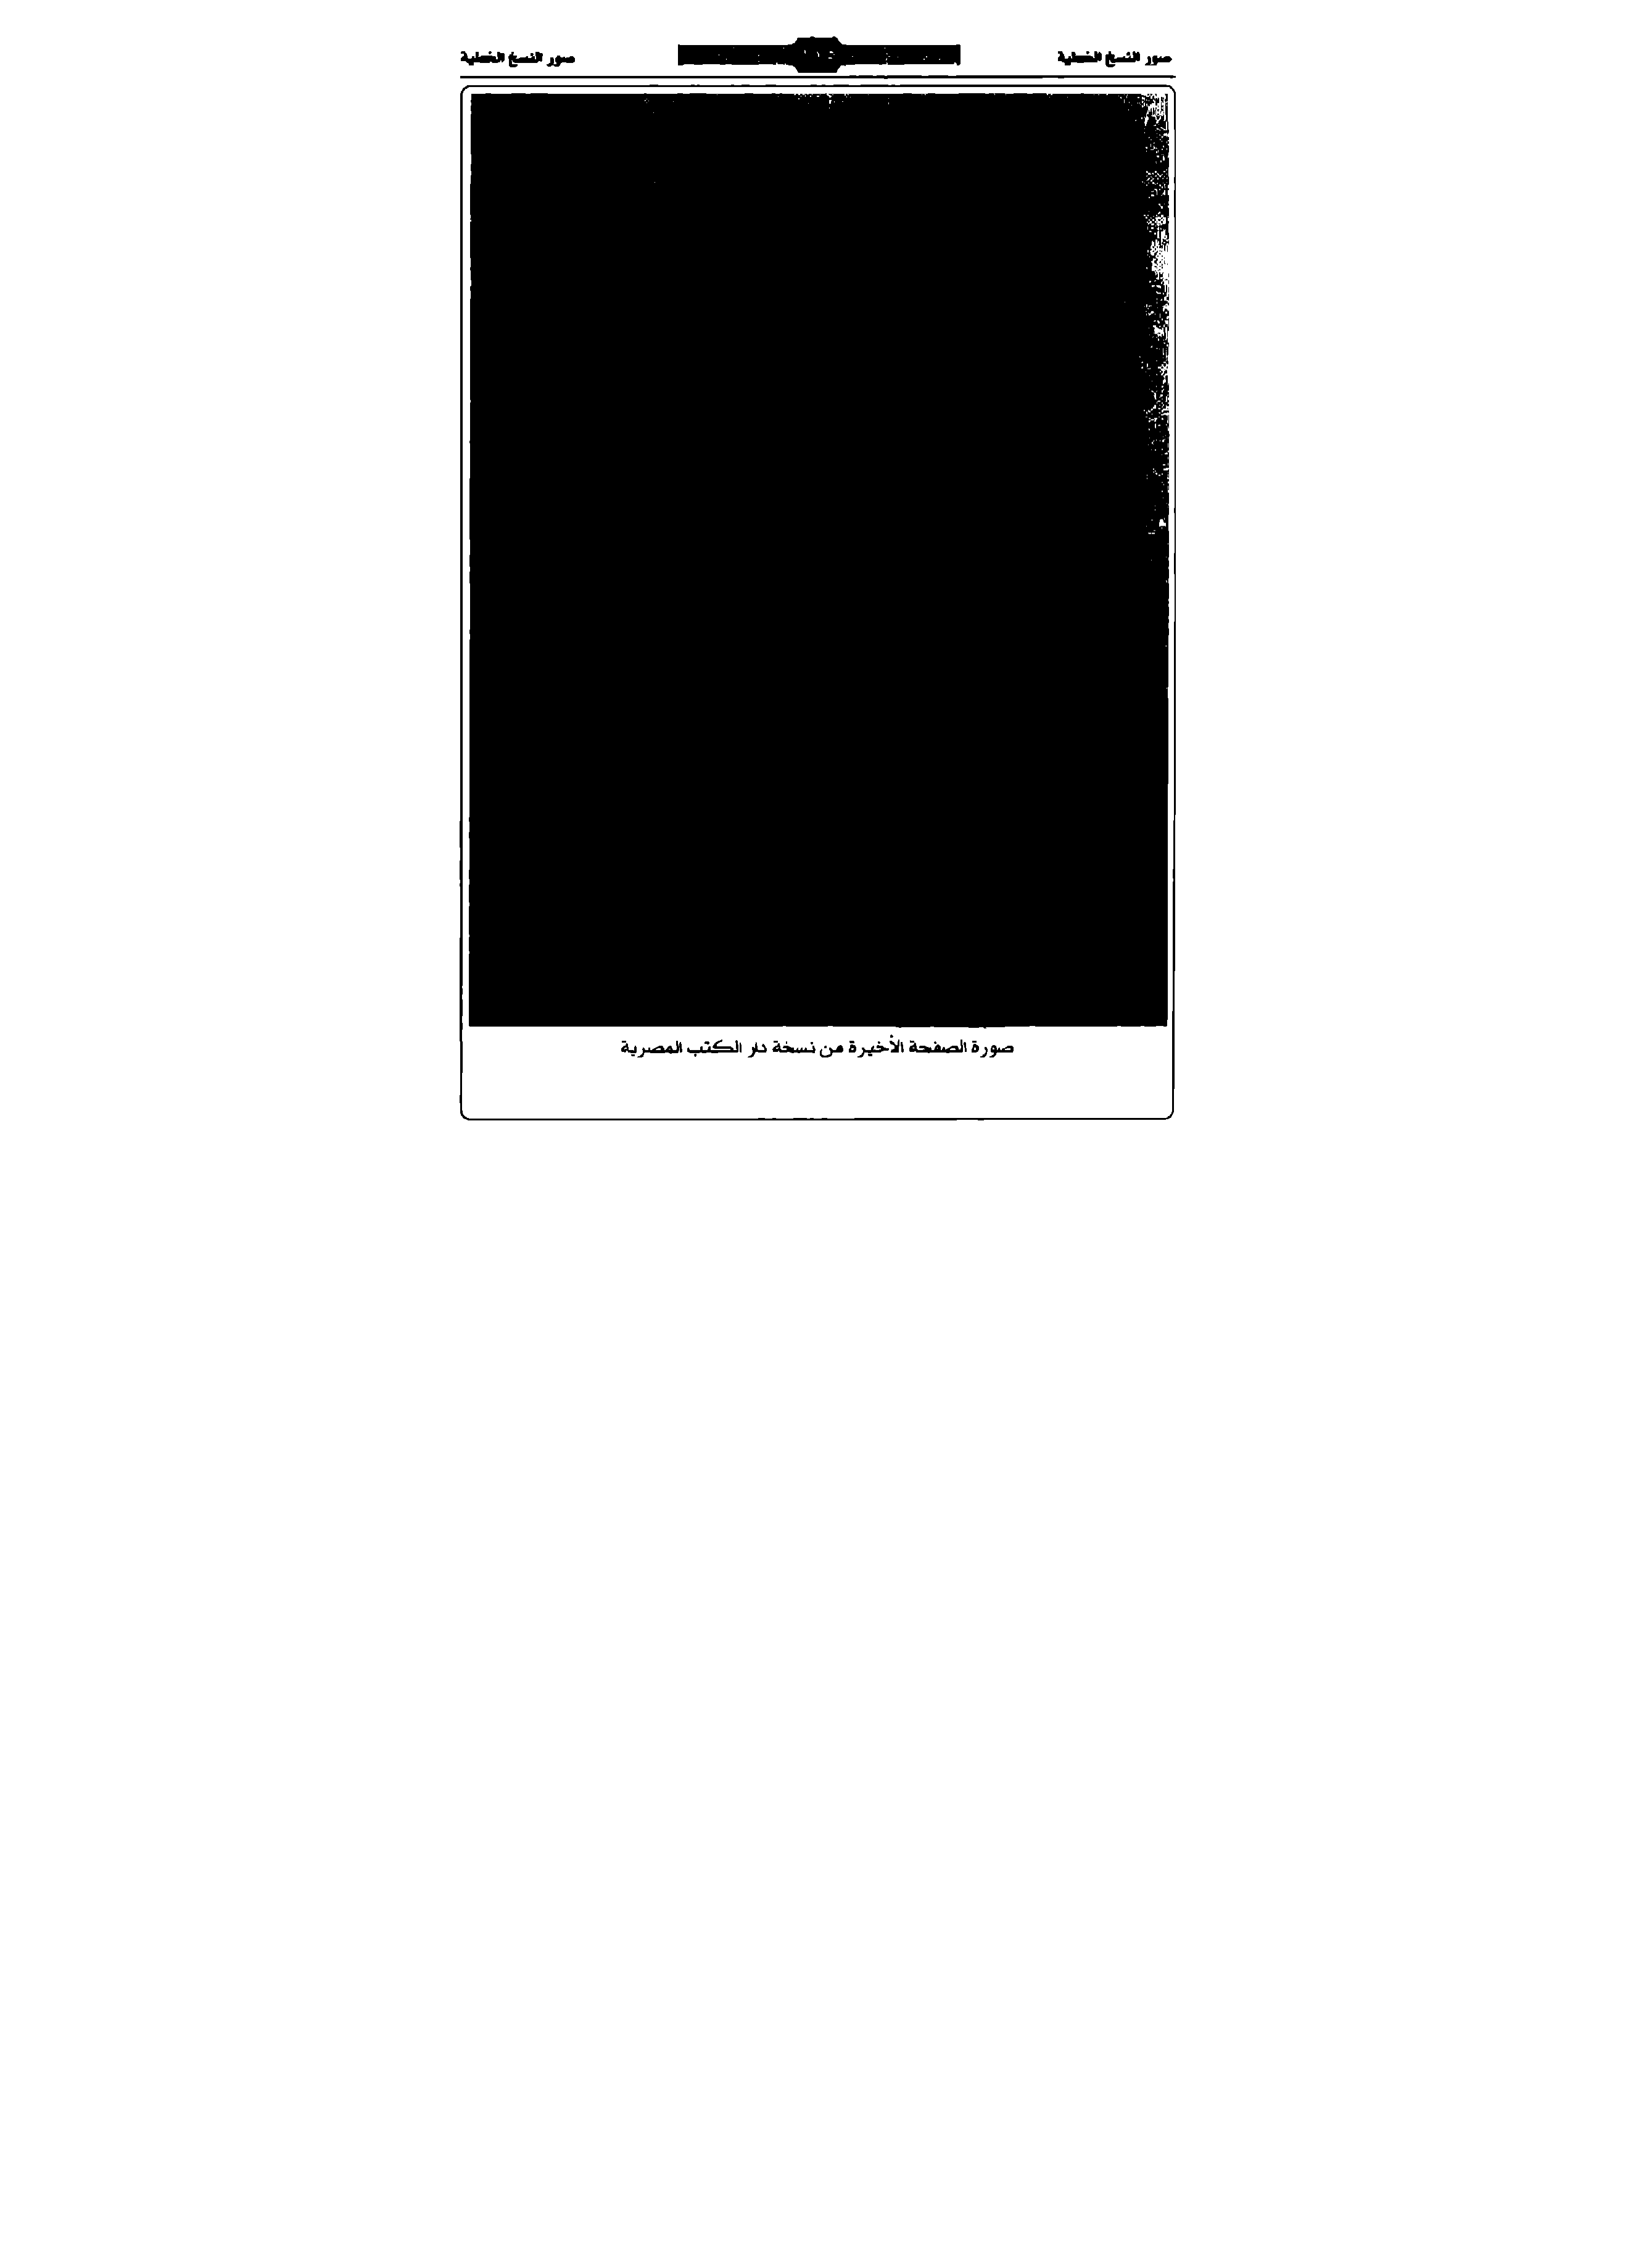 صور النسخ الخطية
صور النسخ الخطية
صورة الصفحة الأخيرة من نسخة دار الكتب المصرية